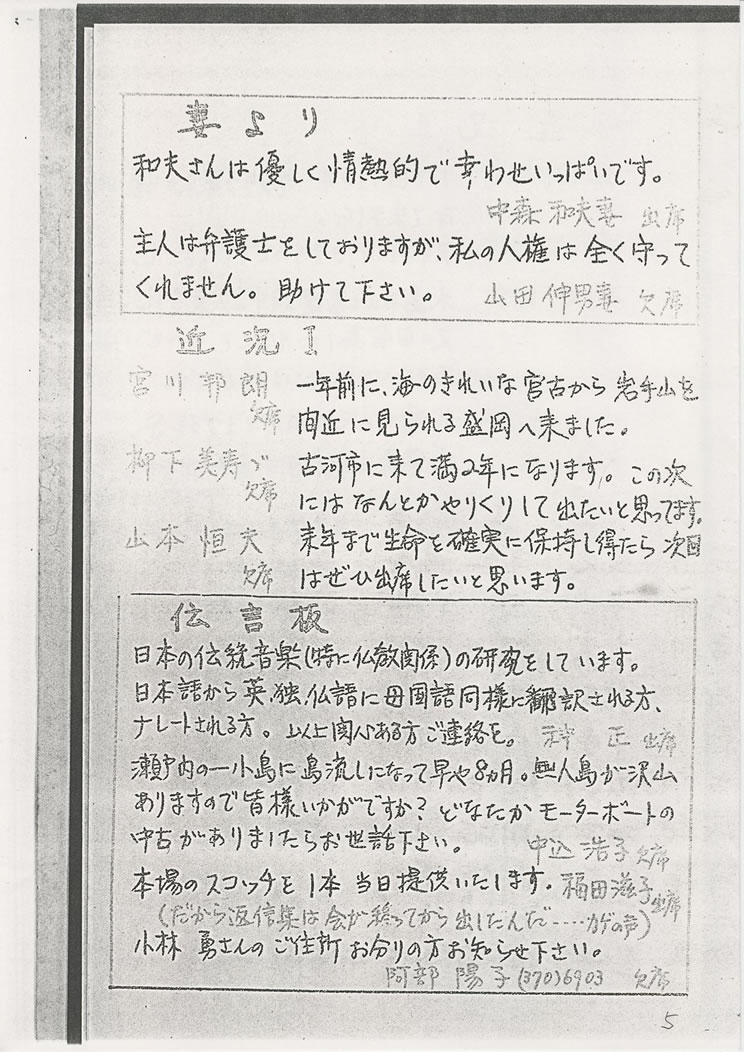 妻より
和夫さんは優しく情熱的で幸わせいっぱいです。
中森和夫妻 出席
主人は弁護士をしておりますが、私の人権は全く守って
くれません。助けて下さい。 山田伸男妻 欠席
近況I
宮川邦朗 一年前に、海のきれいな宮古から岩手山を
欠席 間近に見られる盛岡へ来ました。
柳下美寿〃 古河市に来て満2年になります。この次
欠席 にはなんとかやりくりして出たいと思ってます。
山本恒夫 来年まで生命を確実に保持し得たら次回
欠席 はぜひ出席したいと思います。
伝言板
日本の伝統音楽(特に仏教関係)の研究をしています。
日本語から英、独、仏語に母国語同様に翻訳される方、
ナレートされる方。以上関心ある方ご連絡を。 正 出席
瀬戸内の一小島に島流しになって早や8ヵ月。無人島が沢山
ありますので皆様いかがですか?どなたかモーターボートの
中古がありましたらお世話下さい。 中込浩子 欠席
本場のスコッチを1本当日提供いたします。福田滋子 出席
(だから返信集は会が終ってから出したんだ……カゲの声)
小林 勇さんのご住所お分りの方お知らせ下さい。
阿部 陽子 (370)6903 欠席
5